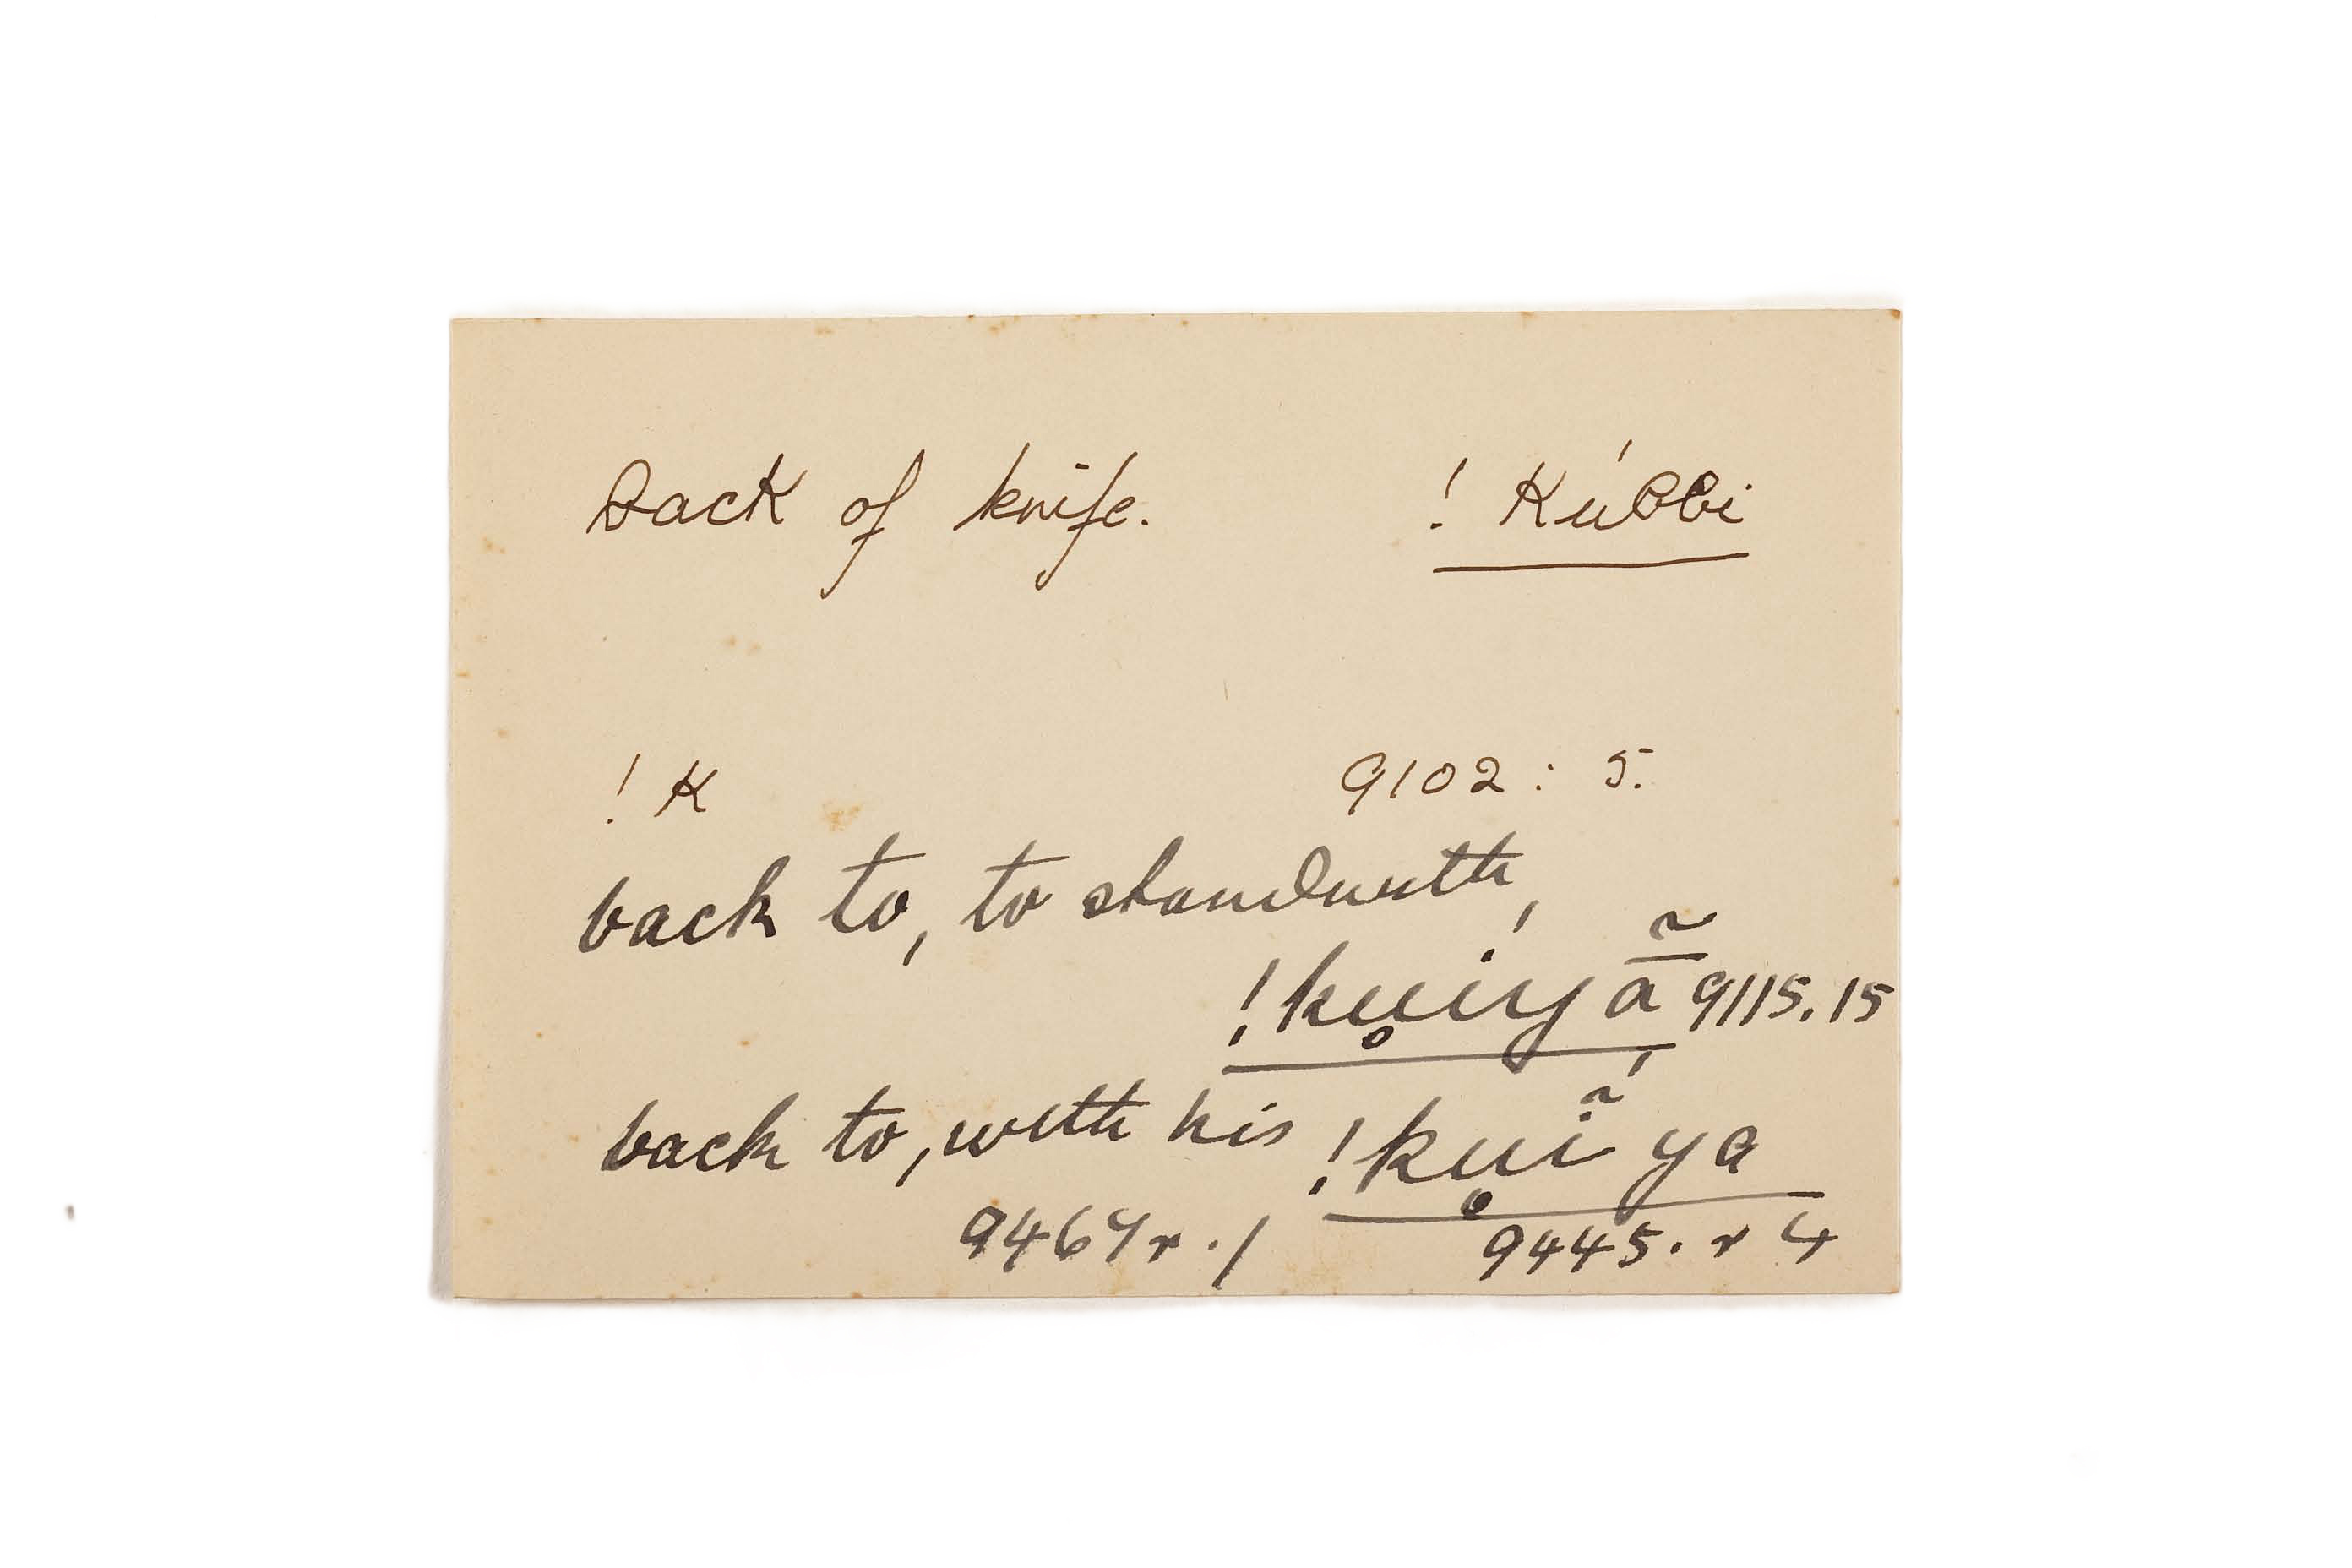 Back of knife. ! Kúbbi
! K 9102 : 5.
back to, to stand with,
!ku̥íyā̃ 9115.15
back to, with his !ku̥ĩ́ ya
9464r. / 9445. r 4